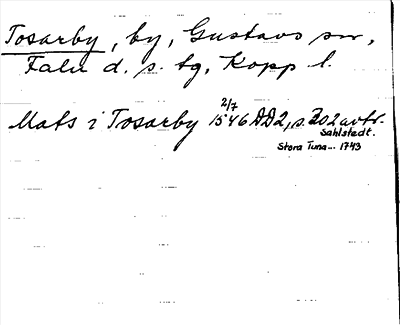 Tosarby, by, Gustavs sn,
Falu d. s. tg, Kopp l.
2/7
Mats i Tosarby 1546 DD2, s. 202 avtr.
Sahlstedt.
Stora Tuna... 1743